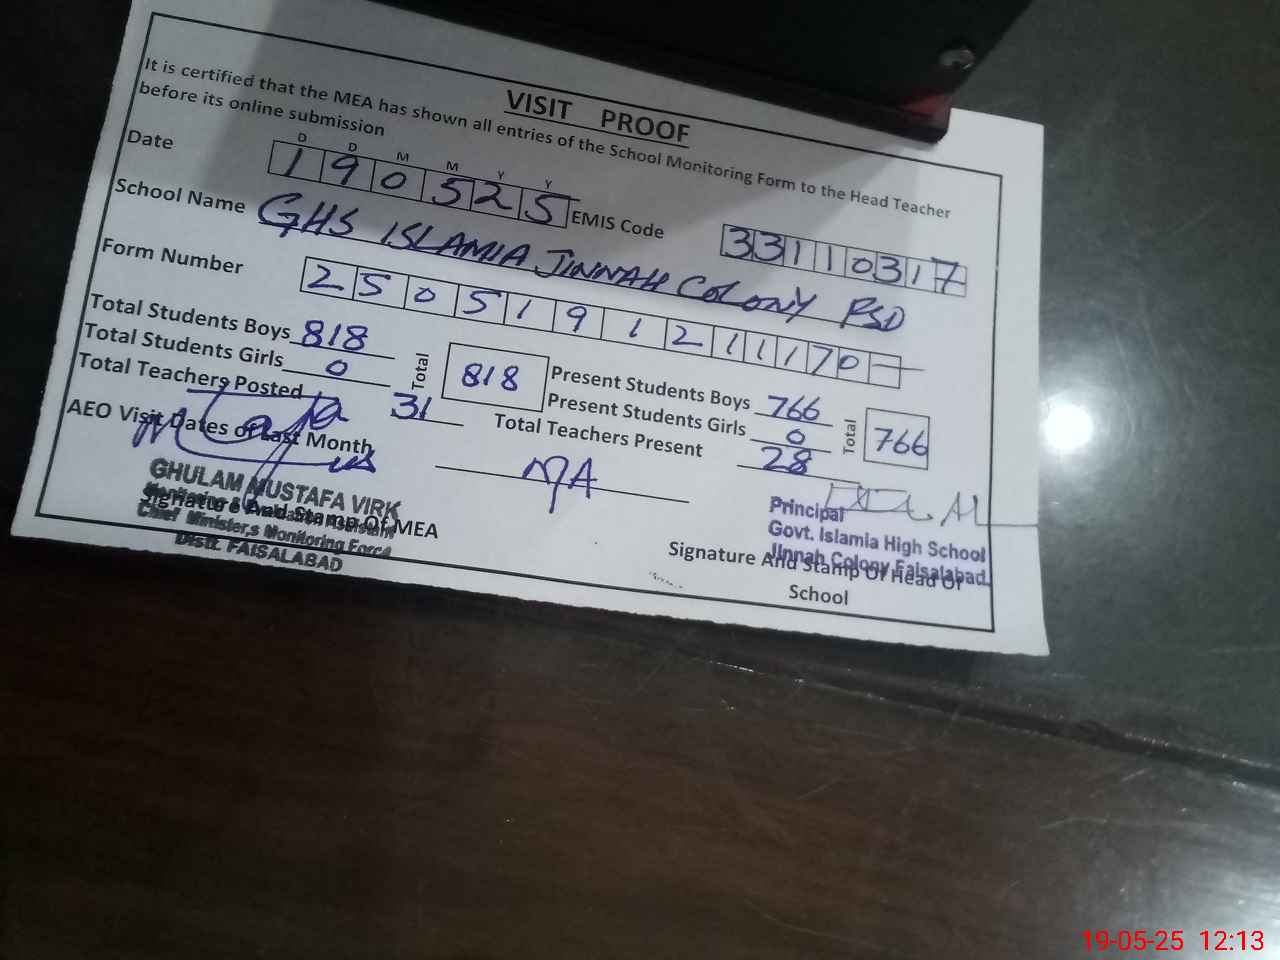 VISIT PROOF
It is certified that the MEA has shown all entries of the School Monitoring Form to the Head Teacher
before its online submission
D D M M Y Y
Date 190525 EMIS Code 33110317
School Name GHS ISLAMIA JINNAH COLONY FSD
Form Number 25051912111170
Total Students Boys 818 Total 818 Present Students Boys 766 Total 766
Total Students Girls 0 Present Students Girls 0
Total Teachers Posted 31 Total Teachers Present 28
AEO Visit Dates of Last Month NA
GHULAM MUSTAFA VIRK
Monitoring & Evaluation Assistant
Signature And Stamp Of MEA
Chief Minister,s Monitoring Force
Distt. FAISALABAD
Principal
Govt. Islamia High School
Jinnah Colony Faisalabad.
Signature And Stamp Of Head Of
School
19-05-25 12:13